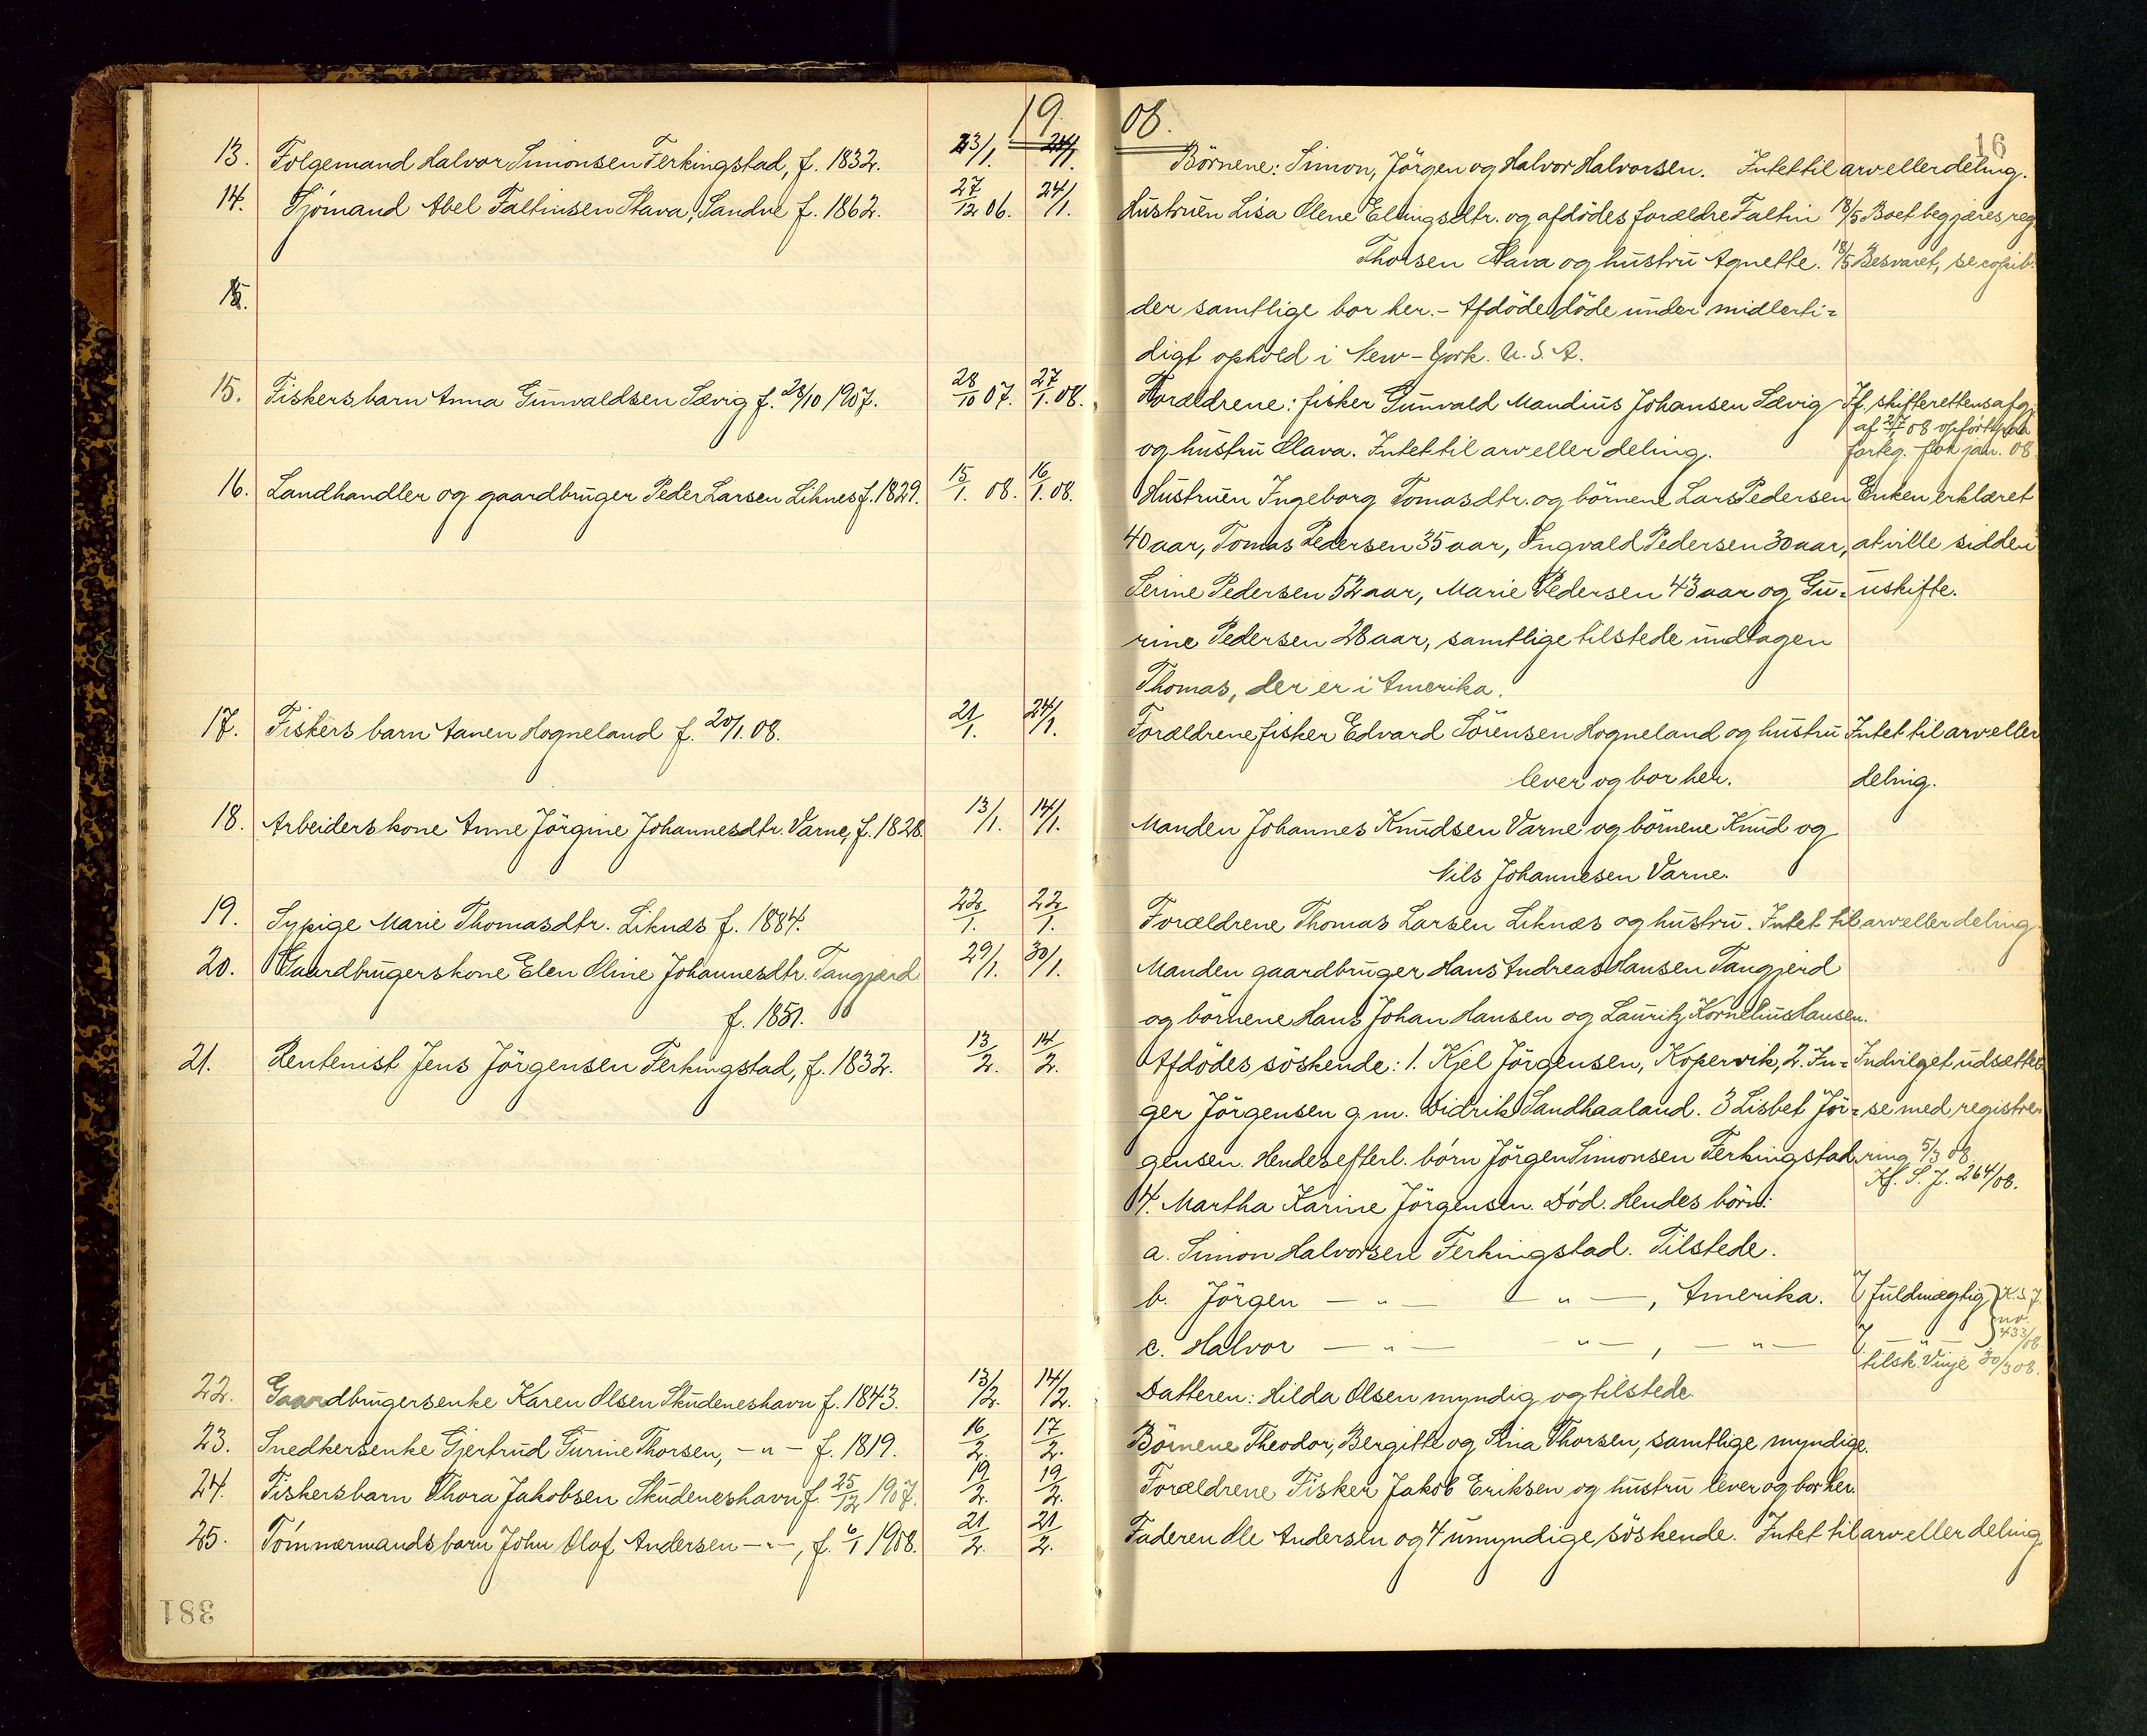 1908.
16
13. Folgemand Halvor Simonsen Ferkingstad, f. 1832. 23/1. 24/1 Börnene: Simon, Jörgen og Halvor Halvorsen. Intet til arv eller deling.
14. Sjømand Abel Faltinsen Stava, Sandve f. 1862. 27/12 06. 24/1. Hustruen Lisa Olene Ellingsdtr. og afdödes forældre Faltin 18/5 Boet begjæres reg
Thorsen Stava og hustru Agnette. 18/5 Besvaret, se copib.
15.
der samtlige bor her. - Afdöde döde under midlerti=
digt ophold i New-York. U.S.A.
15. Fiskersbarn Anna Gunvaldsen Sævig f. 28/10 1907. 28/10 07. 27/1. 08. Forældrene: fisker Gunvald Mandius Johansen Sævig Jf. skifterettens afgj.
af 2/7 08 opført paa
og hustru Olava. Intet til arv eller deling. forteg. for jan. 08.
16. Landhandler og gaardbruger Peder Larsen Liknes f. 1829. 15/1. 08. 16/1. 08. Hustruen Ingeborg Tomasdtr. og börnene Lars Pedersen Enken erklæret
40 aar, Tomas Pedersen 35 aar, Ingvald Pedersen 30 aar, at ville sidde i
Serine Pedersen 52 aar, Marie Pedersen 43 aar og Gu= uskifte.
rine Pedersen 28 aar, samtlige tilstede undtagen
Thomas, der er i Amerika.
17. Fiskersbarn Aanen Hogneland f. 20/1. 08. 21/1. 24/1. Forældrene fisker Edvard Sörensen Hogneland og hustru Intet til arv eller
lever og bor her. deling.
18. Arbeiderskone Anne Jörgine Johannesdtr. Varne, f. 1828. 13/1. 14/1. Manden Johannes Knudsen Varne og börnene Knud og
Nils Johannesen Varne.
19. Sypige Marie Thomasdtr. Liknes f. 1884. 22/1. 22/1. Forældrene Thomas Larsen Liknes og hustru. Intet til arv eller deling
20. Gaardbrugerskone Elen Oline Johannesdtr. Tangjerd 29/1. 30/1. Manden gaardbruger Hans Andreas Hansen Tangjerd
f. 1851. og börnene Hans Johan Hansen og Lauritz Kornelius Hansen.
21. Rentenist Jens Jörgensen Ferkingstad, f. 1832. 13/2. 14/2. Afdödes söskende: 1. Kjel Jörgensen, Kopervik, 2. In= Indvilget udsættel
ger Jörgensen g.m. Didrik Sandhaaland. 3 Lisbet Jör= se med registre
gensen. Hendes efterl. børn Jörgen Simonsen Ferkingstad ring 5/3 08.
Kf. S. J. 264/08.
4. Martha Karine Jörgensen. Död. Hendes börn:
a. Simon Halvorsen Ferkingstad. Tilstede.
b. Jörgen — „ — — „ —, Amerika. fuldmægtig K.S.J.
no.
c. Halvor — „ — — „ —, — „ — — „ — 433/08.
tilsk. Vinje 30/3 08.
22. Gaardbrugersenke Karen Olsen Skudeneshavn f. 1843. 13/2. 14/2. Datteren: Hilda Olsen myndig og tilstede.
23. Snedkersenke Gjertrud Turine Thorsen, — „ — f. 1819. 16/2. 17/2. Börnene Theodor, Bergitte og Sina Thorsen, samtlige myndige.
24. Fiskersbarn Thora Jakobsen Skudeneshavn f. 25/12 1907. 19/2. 19/2. Forældrene Fisker Jakob Eriksen og hustru lever og bor her.
25. Tömmermandsbarn John Olaf Andersen — „ —, f. 6/1 1908. 21/2. 21/2. Faderen Ole Andersen og 4 umyndige söskende. Intet til arv eller deling
381